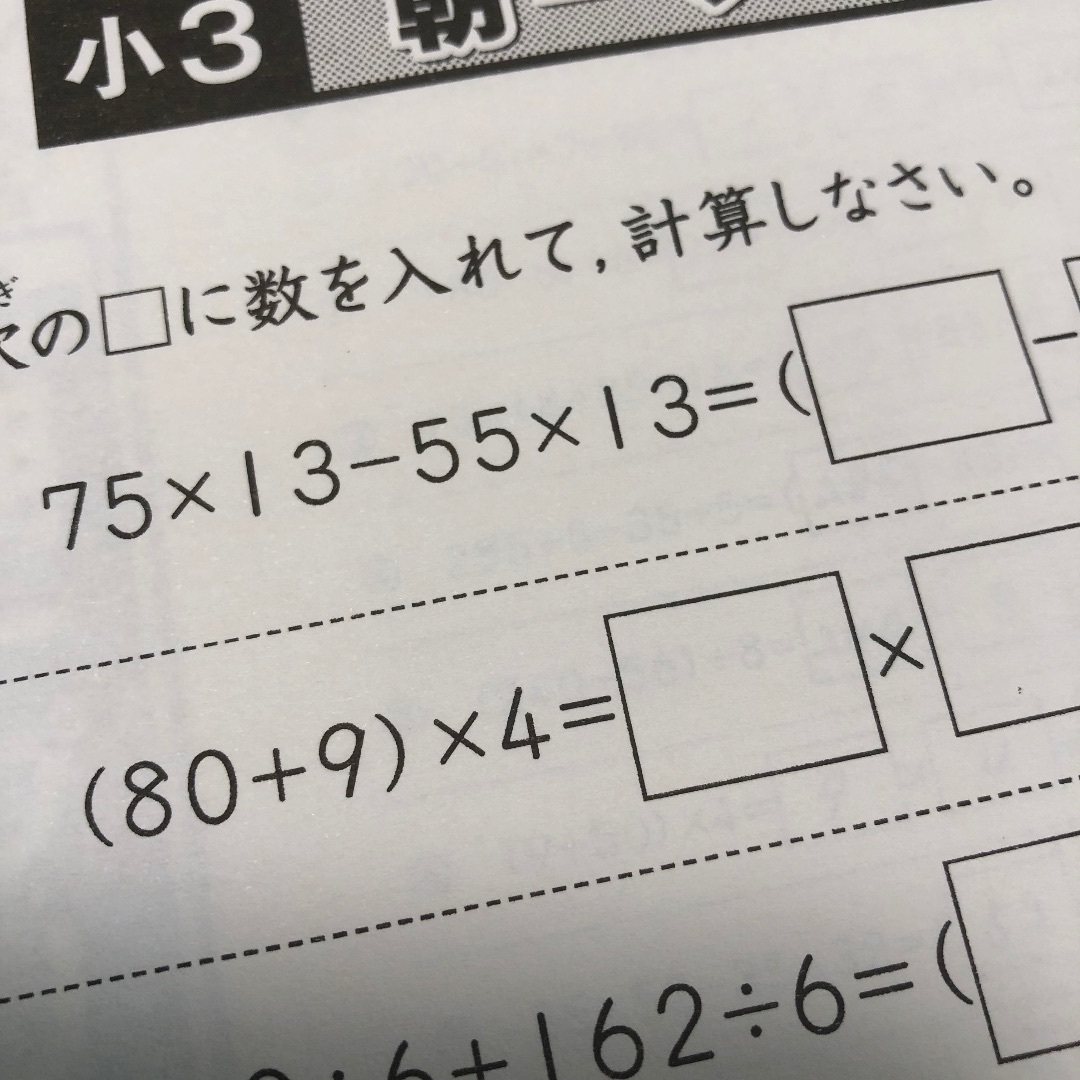 小3 朝
次の□に数を入れて,計算しなさい。
75×13-55×13=(□-
(80+9)×4=□×□
÷6+162÷6=(□